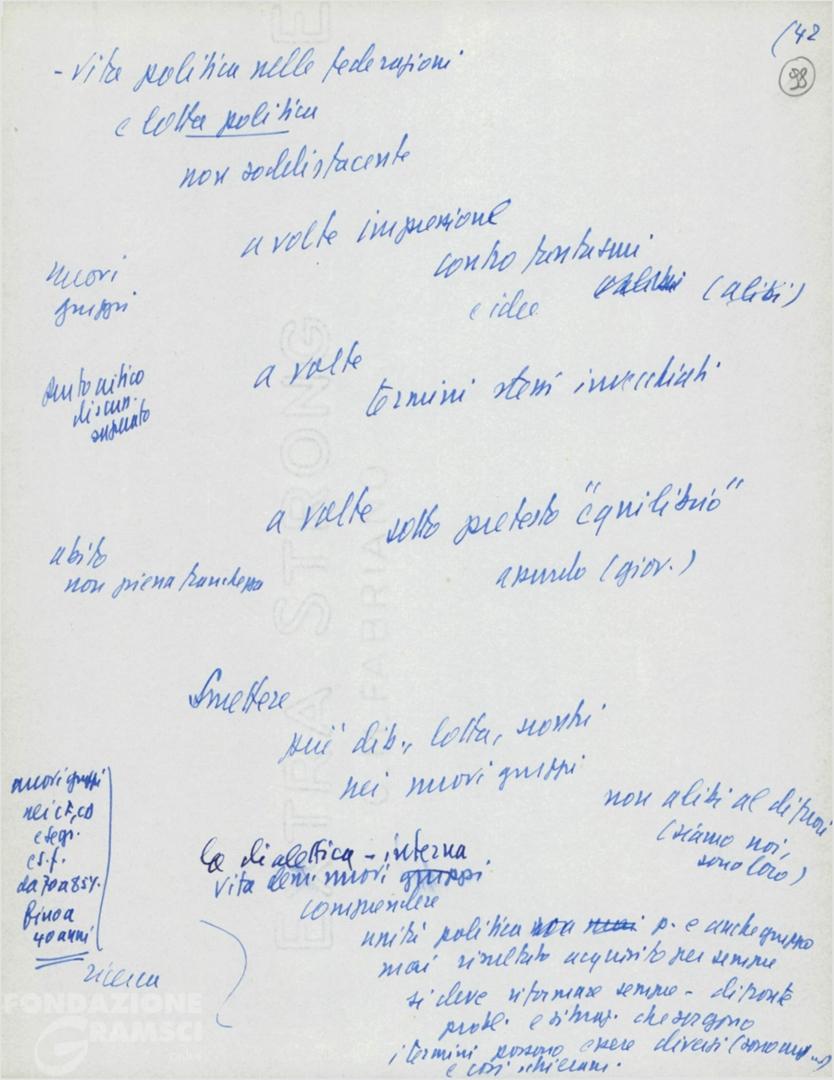 (42
98
- vita politica nelle federazioni
e lotta politica
non soddisfacente
a volte impressione
contro fantasmi
e idee (alibi)
nuovi
gruppi
a volte
termini stessi invecchiati
autocritico
discus.
superato
a volte sotto pretesto "equilibrio"
assurdo (giov.)
abito
non piena franchezza
Smettere
più dib., lotta, scontri
nei nuovi gruppi
non alibi al di fuori
(siamo noi,
sono loro)
nuovi gruppi
nei CF, CD
e segr.
e s.f.
da 70 a 85%
fino a
40 anni
ricerca
la dialettica - interna
vita dei nuovi gruppi
comprendere
unità politica non mai p. e anche gruppo
mai risultato acquisito per sempre
si deve riformare sempre - di fronte
probl. e situaz. che sorgono
i termini possono essere diversi (sono
e così schieram.
EXTRA STRONG
FABRIANO
FONDAZIONE
GRAMSCI